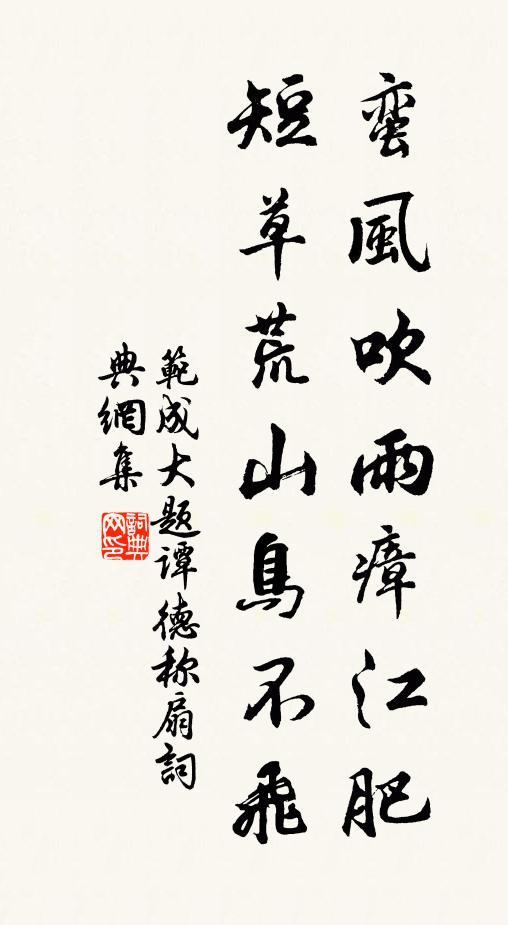 蛮風吹雨瘴江肥
短草荒山鳥不飛
範成大題譚德称扇詞
典網集
詞典網印